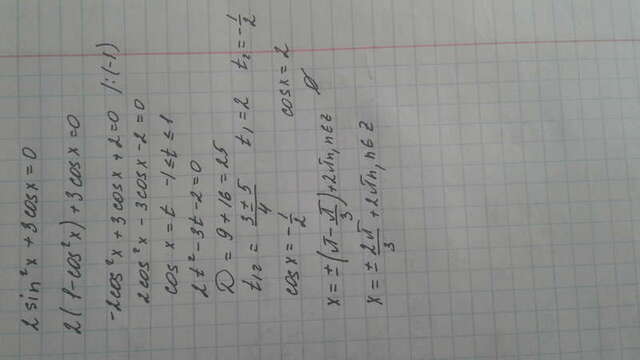 2 sin²x + 3 cos x = 0
2(1 - cos²x) + 3 cos x = 0
-2cos²x + 3cos x + 2 = 0 /:(-1)
2cos²x - 3cos x - 2 = 0
cos x = t -1 ≤ t ≤ 1
2t² - 3t - 2 = 0
D = 9 + 16 = 25
t₁,₂ = (3 ± 5)/4 t₁ = 2 t₂ = -1/2
cos x = -1/2 cos x = 2
∅
x = ±(π - π/3) + 2πn, n ∈ Z
x = ± 2π/3 + 2πn, n ∈ Z